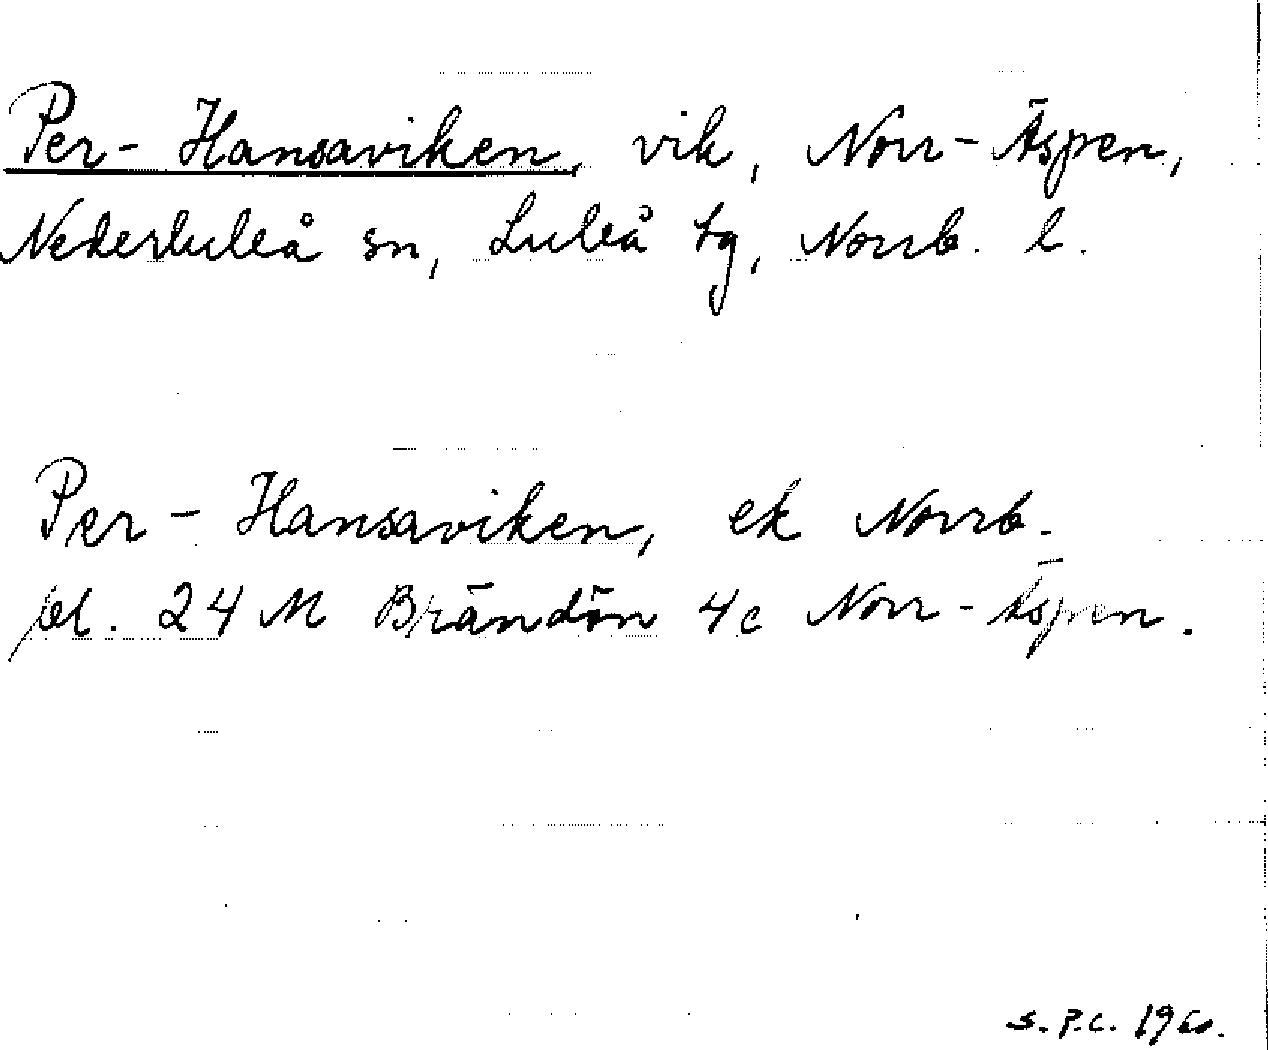 Per-Hansaviken, vik, Norr-Äspen,
Nederluleå sn, Luleå tg, Norrb. l.
Per-Hansaviken, ek Norrb.
bl. 24 M Brändön 4c Norr-Äspen.
S.P.C. 1960.